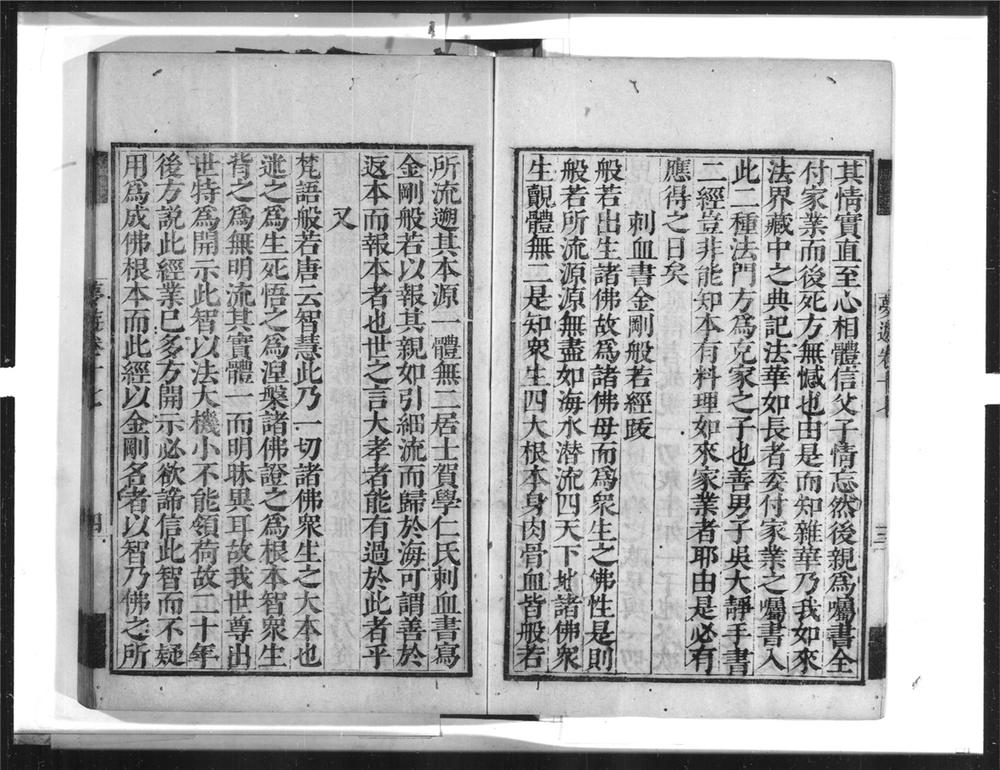 其情實直至心相體信父子情忘然後親為囑書全
付家業而後死方無憾也由是而知雜華乃我如來
法界藏中之典記法華如長者委付家業之囑書入
此二種法門方為克家之子也善男子吳大靜手書
二經豈非能知本有料理如來家業者耶由是必有
應得之日矣
刺血書金剛般若經跋
般若出生諸佛故為諸佛母而為眾生之佛性是則
般若所流源源無盡如海水潛流四天下地諸佛眾
生觀體無二是知眾生四大根本身肉骨血皆般若
夢遊卷十七
三
所流遡其本源一體無二居士賀學仁氏刺血書寫
金剛般若以報其親如引細流而歸於海可謂善於
返本而報本者也世之言大孝者能有過於此者乎
又
梵語般若唐云智慧此乃一切諸佛眾生之大本也
迷之為生死悟之為涅槃諸佛證之為根本智眾生
背之為無明流其實體一而明昧異耳故我世尊出
世特為開示此智以法大機小不能領荷故二十年
後方說此經業已多方開示必欲諦信此智而不疑
用為成佛根本而此經以金剛名者以智乃佛之所
夢遊卷十七
四